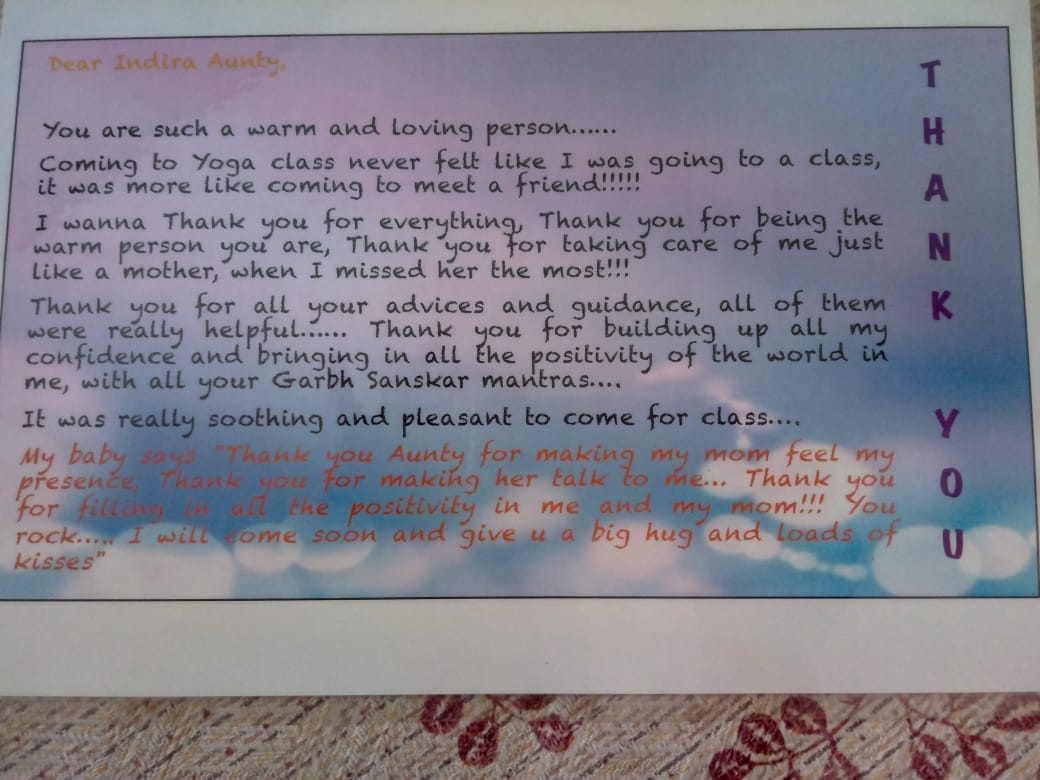 Dear Indira Aunty,
You are such a warm and loving person......
Coming to Yoga class never felt like I was going to a class,
it was more like coming to meet a friend!!!!!
I wanna Thank you for everything, Thank you for being the
warm person you are, Thank you for taking care of me just
like a mother, when I missed her the most!!!
Thank you for all your advices and guidance, all of them
were really helpful...... Thank you for building up all my
confidence and bringing in all the positivity of the world in
me, with all your Garbh Sanskar mantras....
It was really soothing and pleasant to come for class....
My baby says "Thank you Aunty for making my mom feel my
presence, Thank you for making her talk to me... Thank you
for filling in all the positivity in me and my mom!!! You
rock..... I will come soon and give u a big hug and loads of
kisses"
THANK YOU